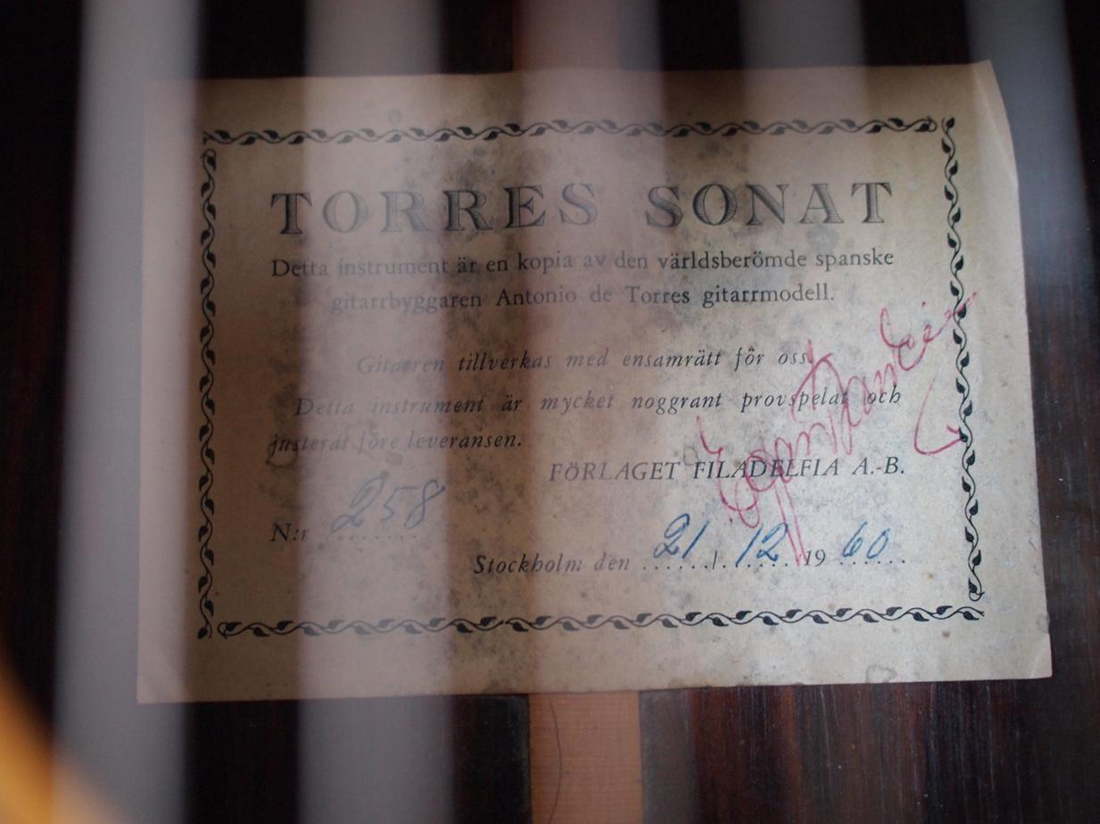 TORRES SONAT
Detta instrument är en kopia av den världsberömde spanske
gitarrbyggaren Antonio de Torres gitarrmodell.
Gitarren tillverkas med ensamrätt för oss.
Detta instrument är mycket noggrant provspelat och
justerat före leveransen.
FÖRLAGET FILADELFIA A.-B.
N:r 258
Stockholm den 21/12 1960